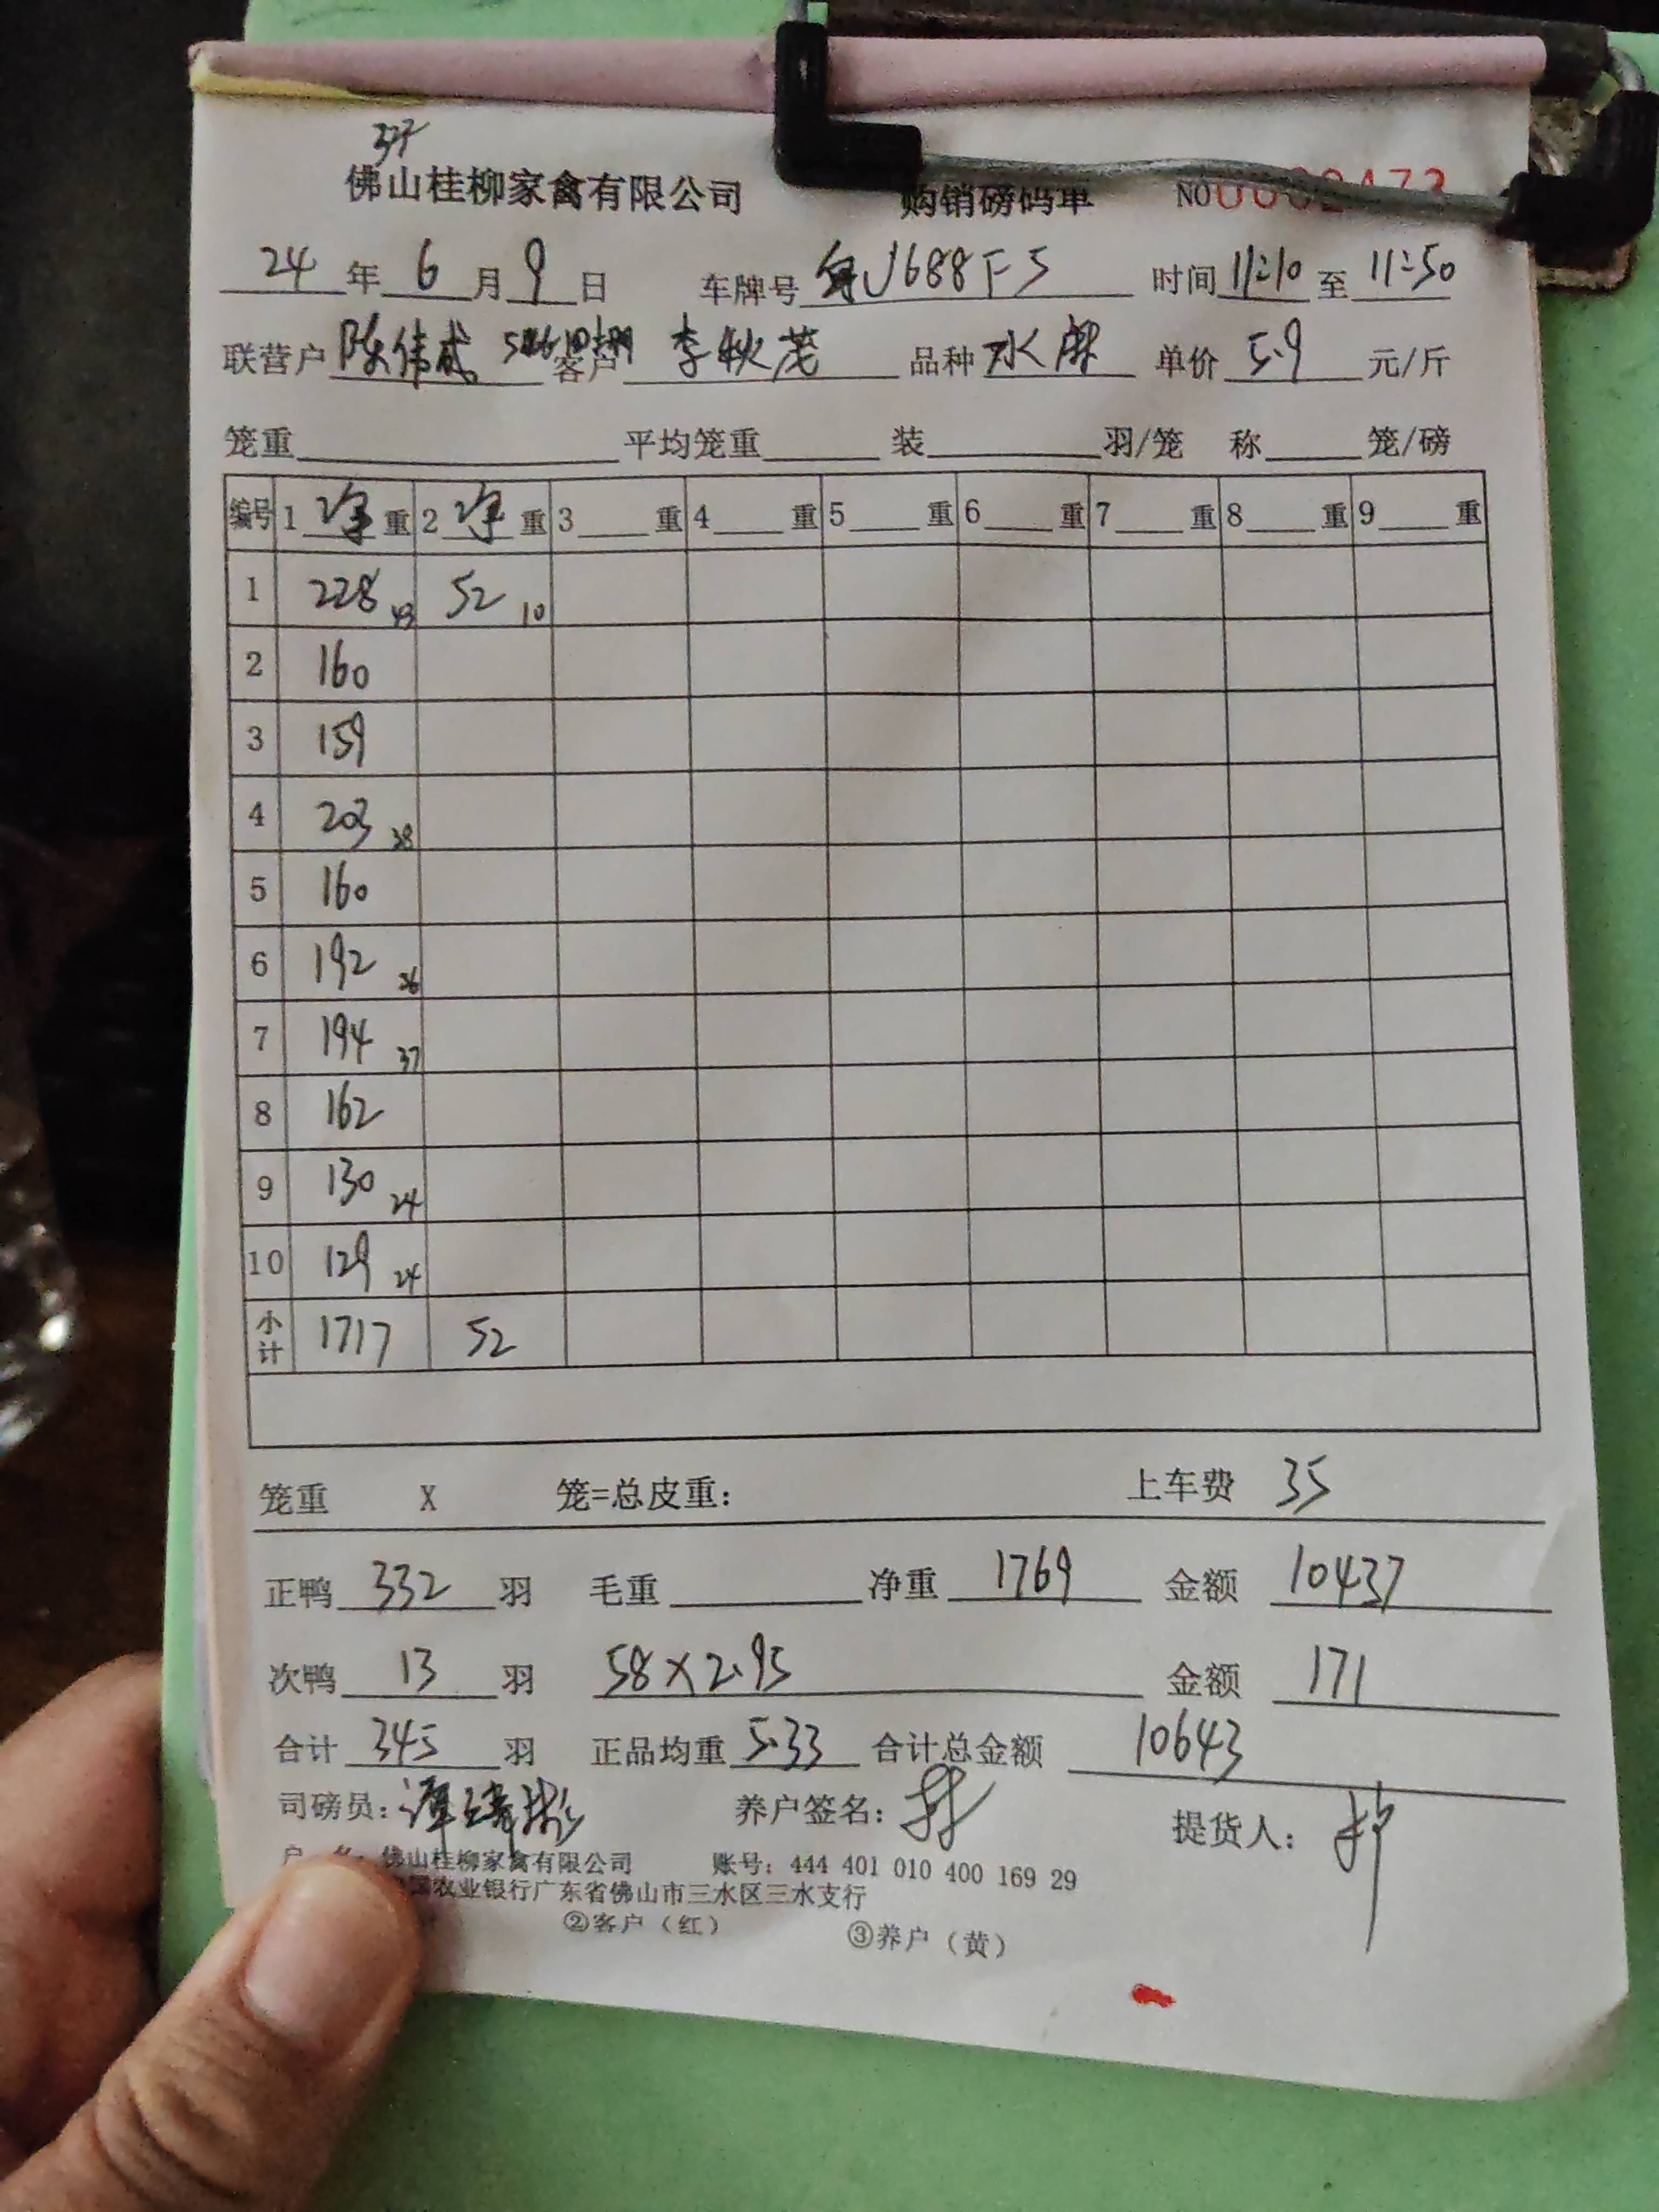 佛山桂柳家禽有限公司 购销磅码单 NO
24年6月9日 车牌号 J688F5 时间11:10至11:50
联营户 陈伟成 客户 李秋茂 品种 水鸭 单价 5.9 元/斤
笼重 平均笼重 装 羽/笼 称 笼/磅
编号 1 净重 2 净重 3 重 4 重 5 重 6 重 7 重 8 重 9 重
1 228 43 52 10
2 160
3 159
4 203 38
5 160
6 192 36
7 194 37
8 162
9 130 24
10 129 24
小计 1717 52
笼重 X 笼=总皮重: 上车费 35
正鸭 332 羽 毛重 净重 1769 金额 10437
次鸭 13 羽 58×2.95 金额 171
合计 345 羽 正品均重 5.33 合计总金额 10643
司磅员: 养户签名: 提货人:
户 名: 佛山桂柳家禽有限公司 账号: 444 401 010 400 169 29
国农业银行广东省佛山市三水区三水支行
②客户（红） ③养户（黄）